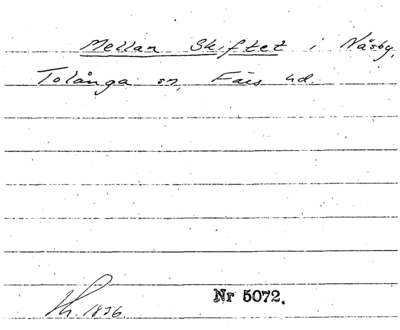 Mellan Skiftet i Näsby,
Tolånga sn, Färs hd.
Lk. 1836
Nr 5072.